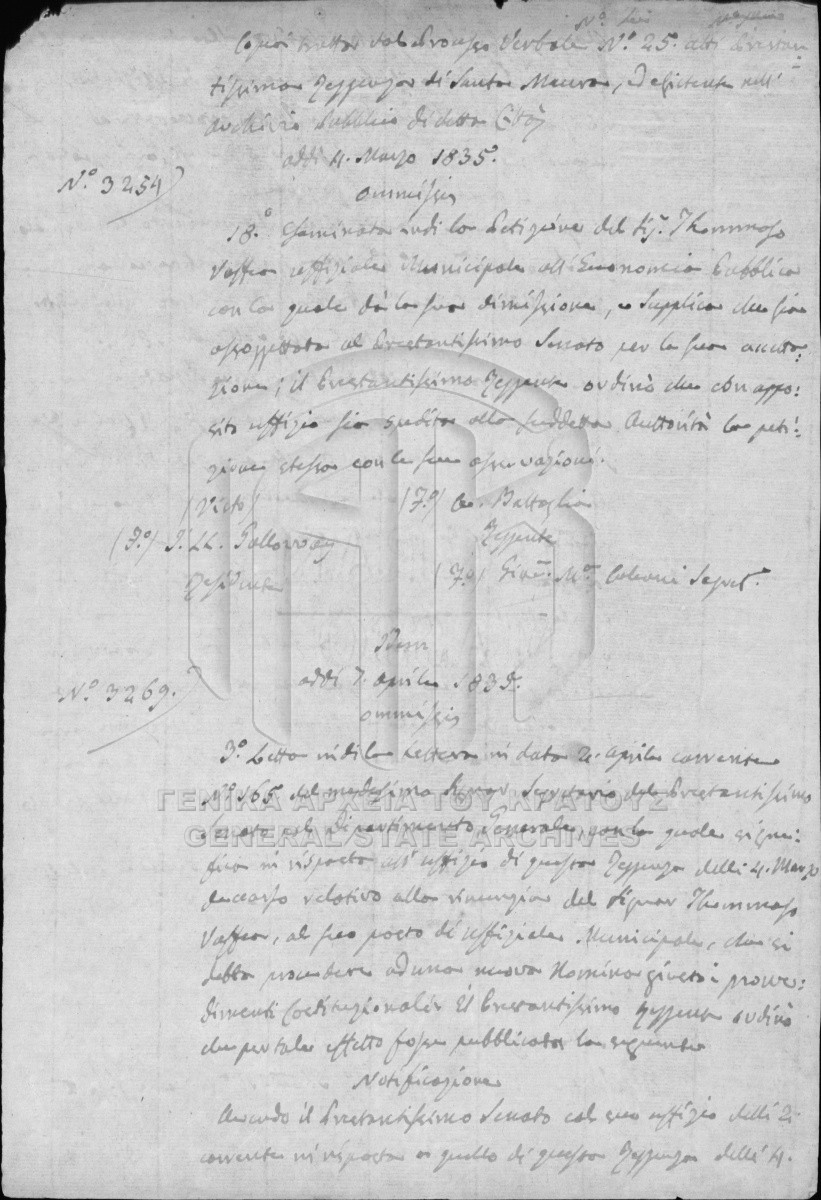 Copia tratta dal Processo Verbale Nº 25. della Prestan
tissima Reggenza di Santa Maura, ed esistente nell'
Archivio Pubblico di detta Città
addì 4. Marzo 1835.
Nº 3254)
ommissis
18.º Esaminata indi la Petizione del Sig.r Thommaso
Vaffea uffiziale Municipale all'Economia Pubblica
con la quale dà la sua dimissione, e supplica che sia
assoggettata al Prestantissimo Senato per la sua accetta:
zione; il Prestantissimo Reggente ordinò che con appo:
sito uffizio sia spedita alla suddetta Auttorità la peti:
zione stessa con le sue osservazioni.
(Visto) (F.º) Battaglia
(F.º) Gallowey Reggente
Residente (F.º) Gio: M.ª Coloni Segret.º
Nº 3269.)
addì 7. Aprile 1835.
ommissis
3.º Letta indi la Lettera in data 2. Aprile corrente
Nº 165 del medesimo Signor Secretario del Prestantissimo
Senato nel Dipartimento Generale con la quale signi:
fica in risposta all'uffizio di questa Reggenza delli 4. Marzo
decorso relativo alla rinunzia del Signor Thommaso
Vaffea, al suo posto di uffiziale Municipale, che si
debba procedere ad una nuova Nomina giusta i provve:
dimenti Costituzionali; Il Prestantissimo Reggente ordinò
che per tale effetto fosse pubblicata la seguente
Notificazione
Avendo il Prestantissimo Senato col suo uffizio delli 2.
corrente in risposta a quello di questa Reggenza delli 4.
ΓΕΝΙΚΑ ΑΡΧΕΙΑ ΤΟΥ ΚΡΑΤΟΥΣ
GENERAL STATE ARCHIVES